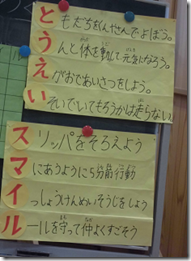 ともだちをくんせんでよぼう。
うんと体を動して元気になろう。
えがおであいさつをしよう。
いそいでいてもろうかは走らない
スリッパをそろえよう
マにあうように5分前行動
イっしょうけんめいそうじをしよう
ルールを守って仲よくすごそう